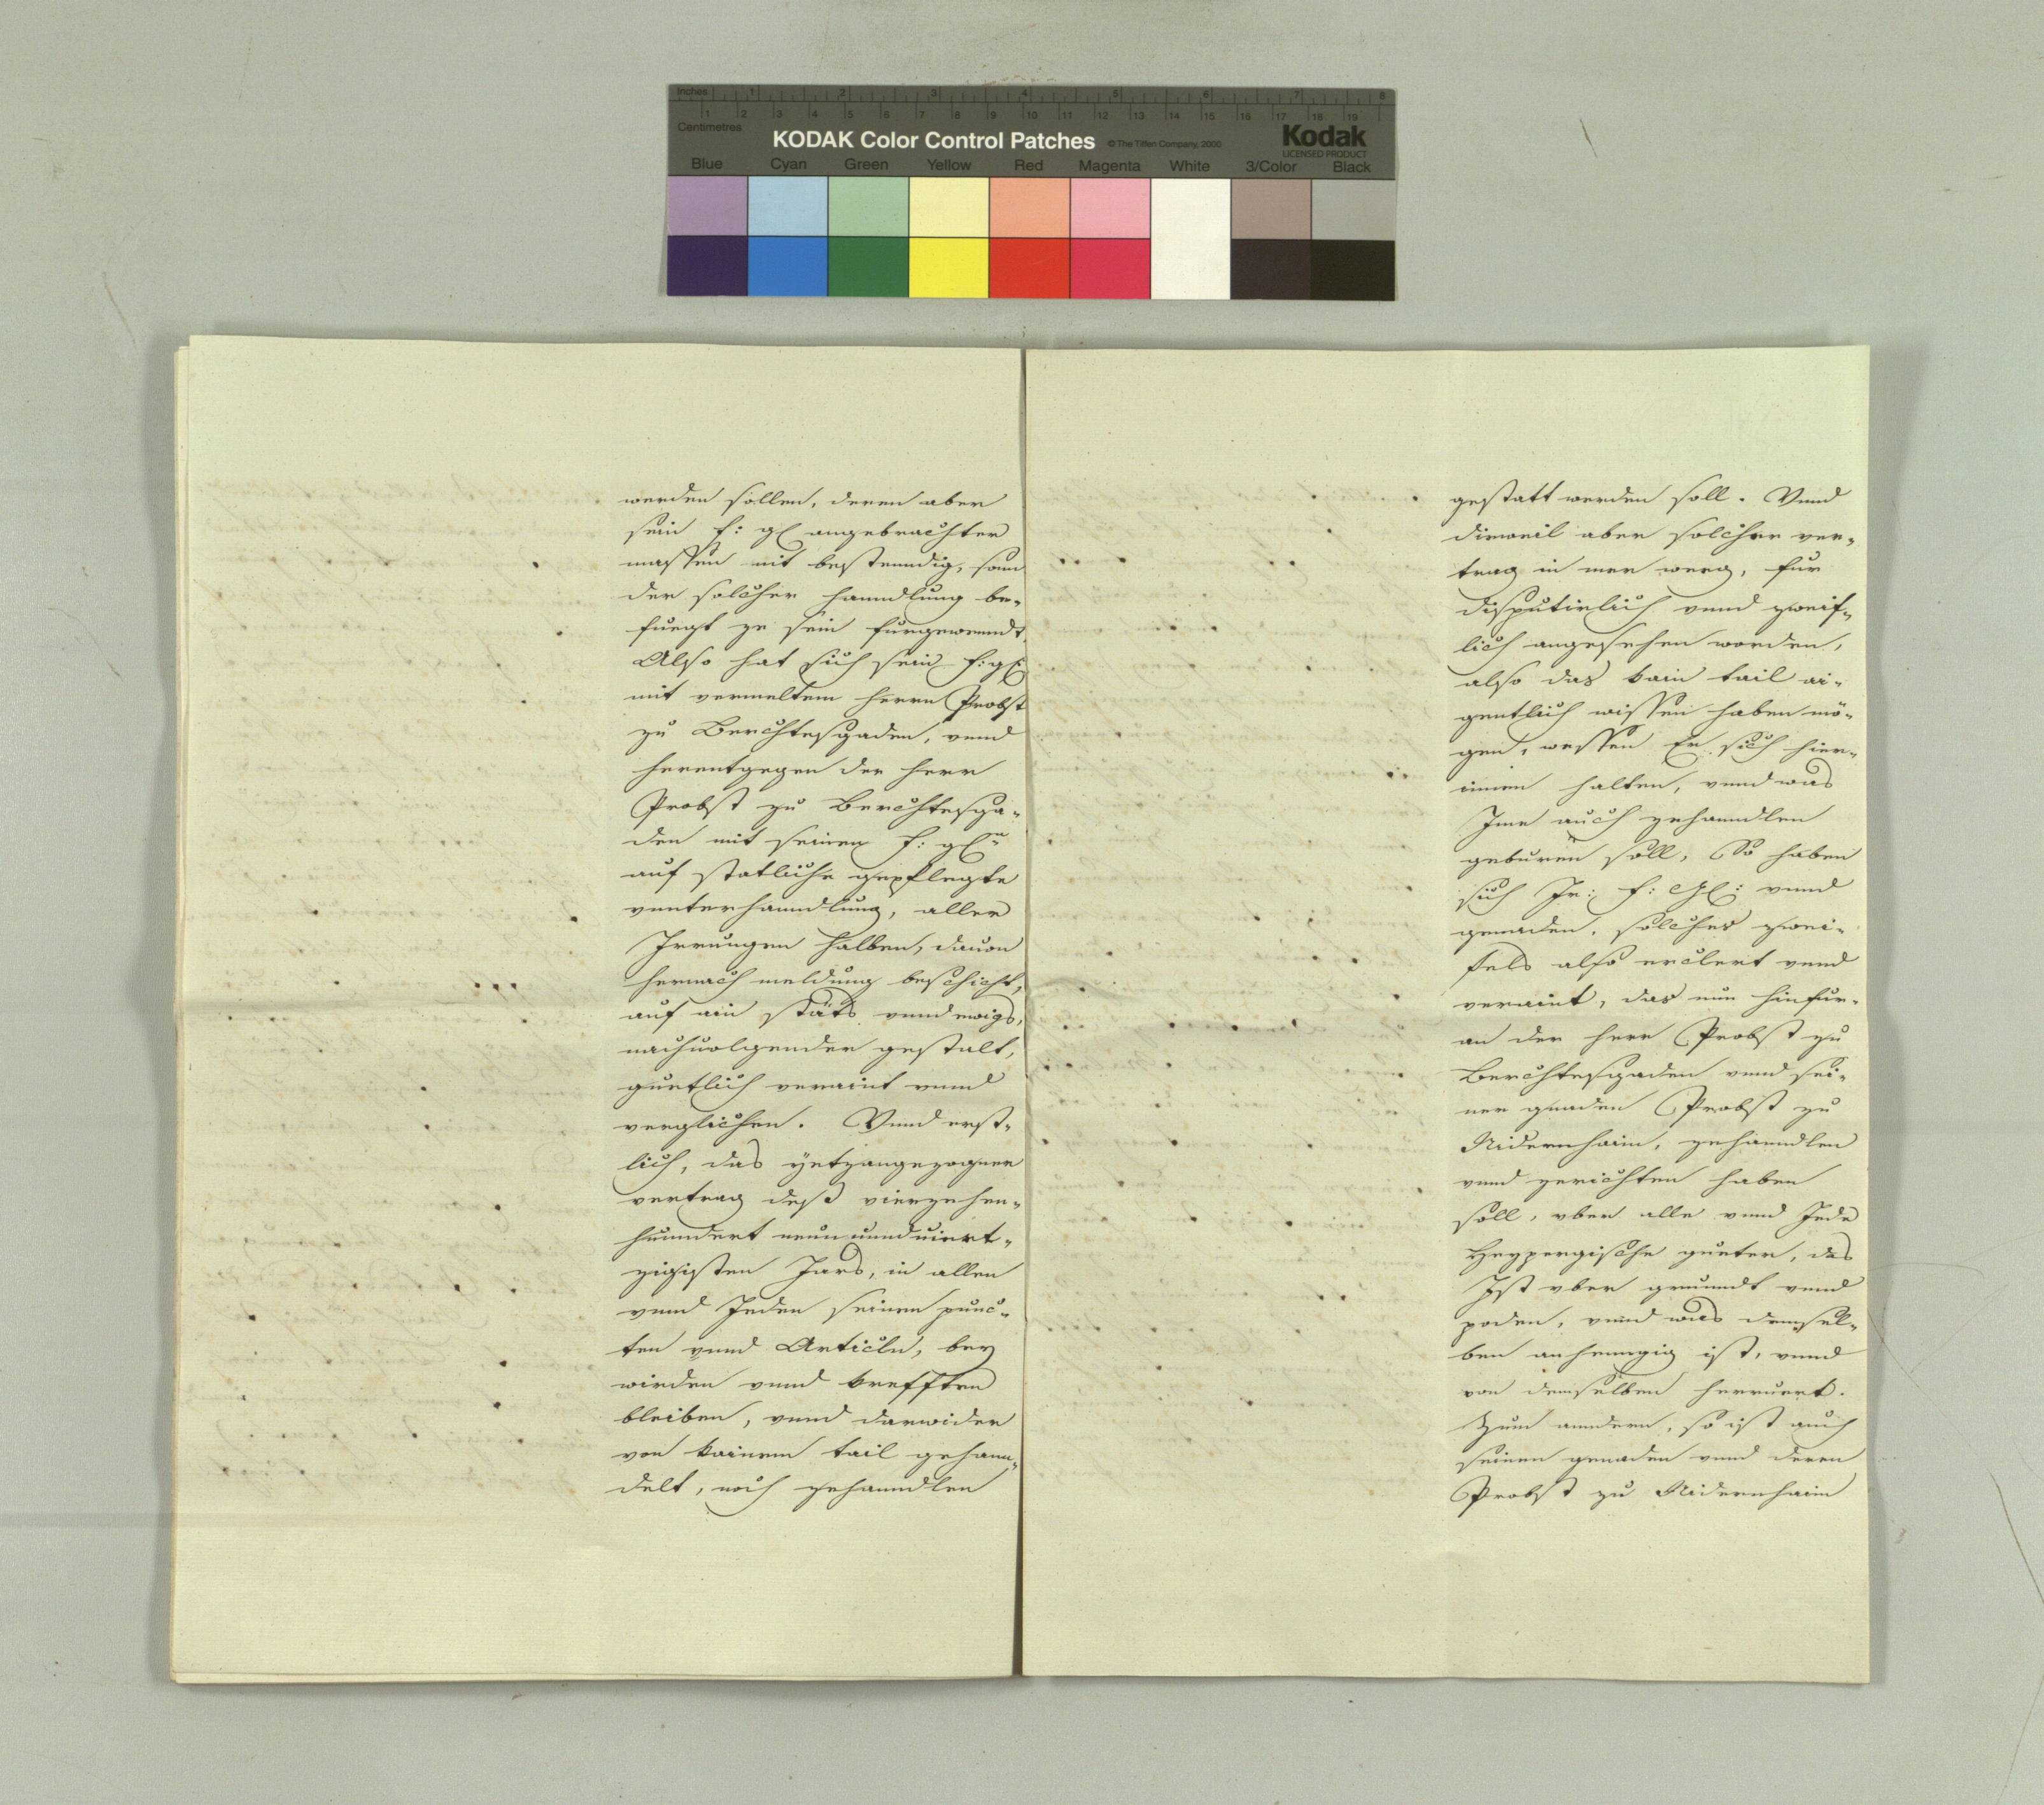 Inches 1 2 3 4 5 6 7 8
Centimetres 1 2 3 4 5 6 7 8 9 10 11 12 13 14 15 16 17 18 19
KODAK Color Control Patches © The Tiffen Company, 2000 Kodak
LICENSED PRODUCT
Blue Cyan Green Yellow Red Magenta White 3/Color Black
werden sollen, deren aber
sein f: gl angebrachter
massen nit bestenndig, sonn
der solcher hanndlung be-
fuegt ze sein furgewenndt
Also hat sich sein f: gl:
mit vermeltem herrn Probst
zu Berchtesgaden, vnnd
herentgegen der herr
Probst zu Berchtesga-
den mit seinen f: gln
auf statliche gepflegte
vnnterhanndlung, aller
Irrungen halben, dauon
hernach meldung beschicht,
auf ain stäts vnnd ewigs,
nachuolgender gestalt,
guetlich veraint vnnd
verglichen. Vnnd erst-
lich, das yetzangezogner
vertrag deß vierzehen-
hunndert neunvnnduiert-
zigisten Jars, in allen
vnnd Jeden seinen punc-
ten vnnd Articln, bey
wirden vnnd krefften
bleiben, vnnd darwider
von kainem tail gehann-
delt, noch zehanndlen
gestatt werden soll. Vnnd
dieweil aber solcher ver-
trag in mer weeg, fur
disputirlich vnnd zweif-
lich angesehen worden,
also das kain tail ai-
gentlich wissen haben mö-
gen, wessen Er sich hier-
innen halten, vnnd was
Ime auch zehanndlen
geburen soll, So haben
sich Ir: f: Gl: vnnd
genaden, solches zwei-
fels also erclert vnnd
veraint, das nun hinfur-
an der herr Probst zu
Berchtesgaden vnnd sei-
ner gnaden Probst zu
Nidernhaim, zehanndlen
vnnd zerichten haben
soll, vber alle vnnd Jede
Heypergische gueter, das
Ist vber grunndt vnnd
poden, vnnd was demsel-
ben anhenngig ist, vnnd
von demselben herruert.
Zum anndern, so ist auch
seinen genaden vnnd deren
Probst zu Nidernhaim